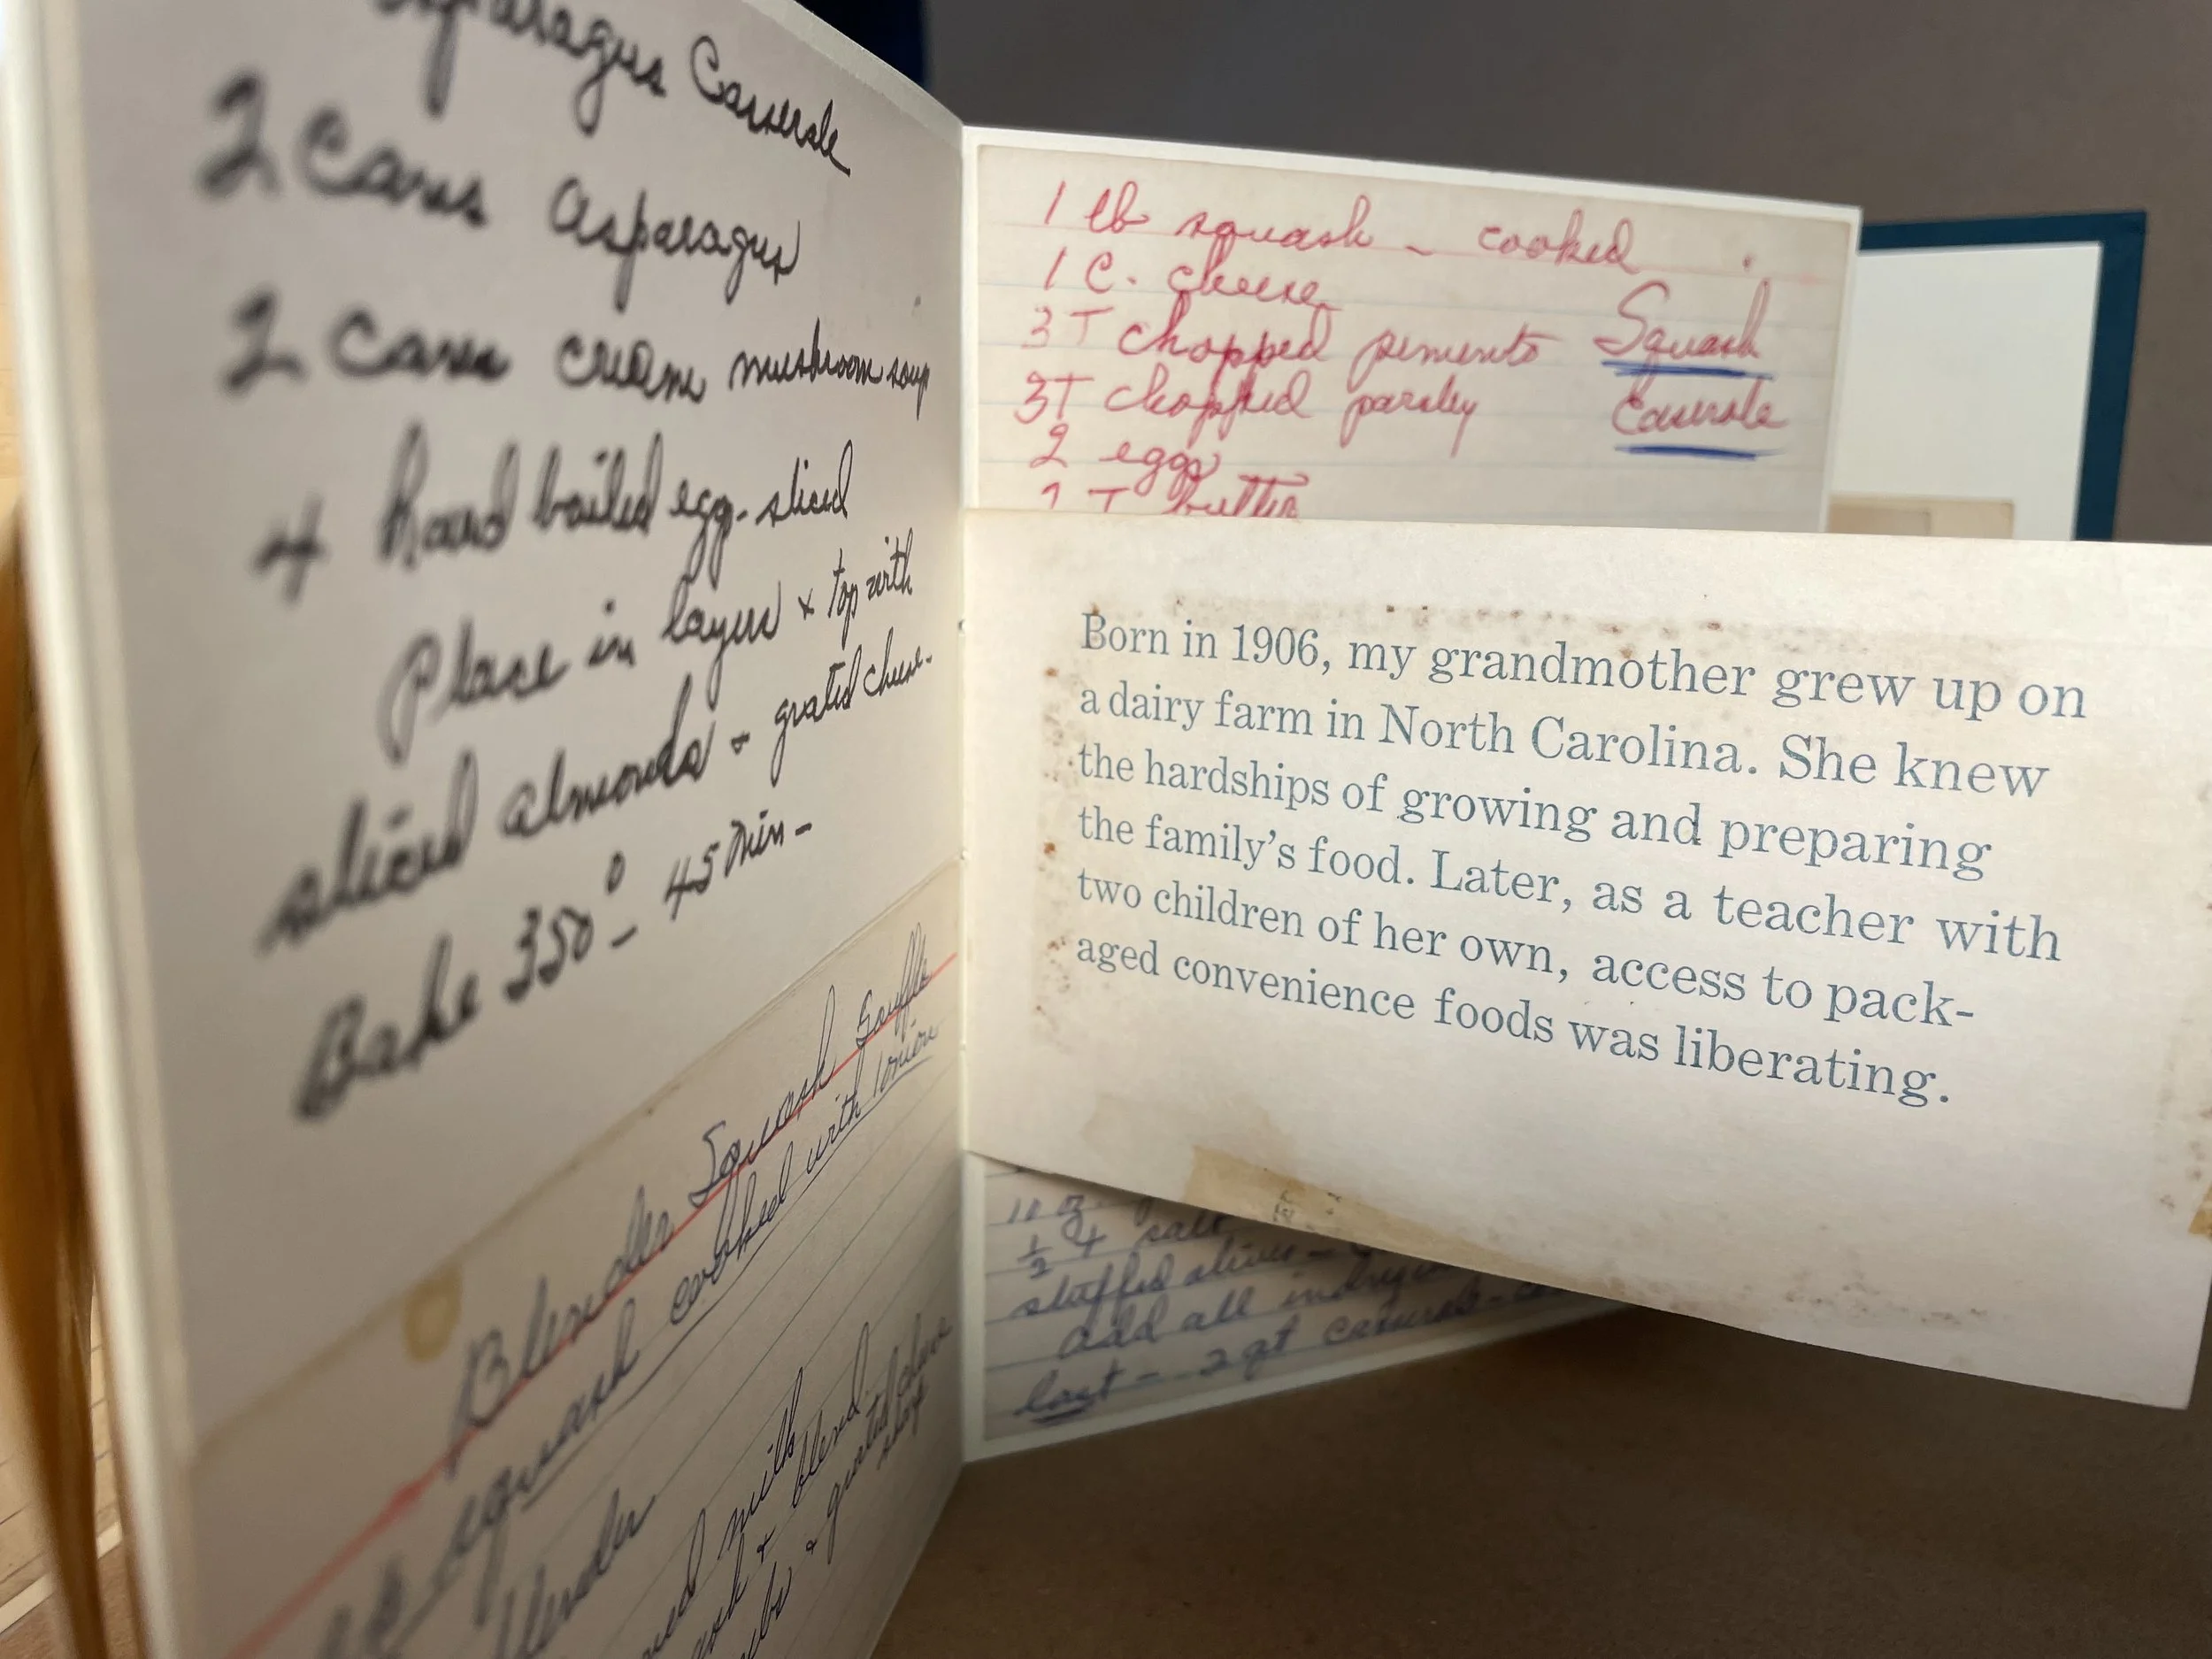 Asparagus Casserole
2 Cans asparagus
2 Cans cream mushroom soup
4 hard boiled egg - sliced
Place in layers & top with
sliced almonds & grated cheese.
Bake 350° - 45 min -
Blender Squash Souffle
squash cooked with 1 onion
blender
milk
& blend
& grated cheese
1 lb squash - cooked
1 C. cheese
3 T chopped pimento
3T chopped parsley
2 eggs
T butter
Squash
Casserole
Born in 1906, my grandmother grew up on
a dairy farm in North Carolina. She knew
the hardships of growing and preparing
the family's food. Later, as a teacher with
two children of her own, access to pack-
aged convenience foods was liberating.
salt
stuffed olives -
add all
last - 2 qt